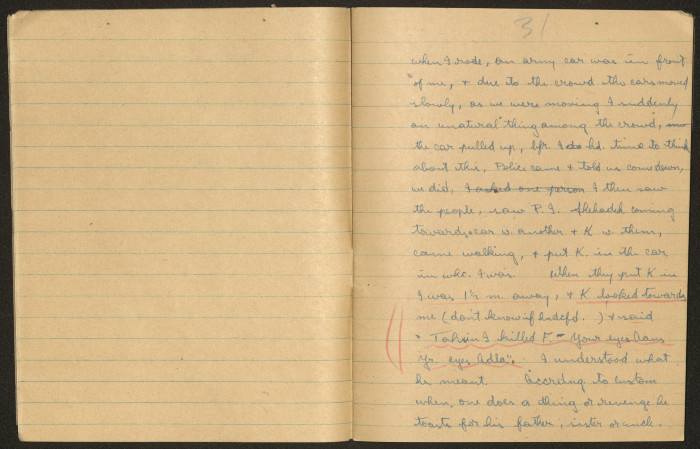 31
when I rode, an army car was in front
of me, & due to the crowd the cars moved
slowly, as we were moving I suddenly
an unnatural thing among the crowd,
the car pulled up, bfr. I do hd. time to think
about this, Police came & told us come down,
we did, I asked one person I then saw
the people, saw P.I. Shehadeh coming
towards car w. another & K w. them,
came walking, & put K. in the car
in whc. I was. When they put K in
I was 1½ m. away, & K looked towards
me (don't know if hndcfd. ) & said
" Tahsin I killed F. – Your eyes
yr. eyes Adla". I understood what
he meant. According to custom
when, one does a thing or revenge he
toasts for his father, sister or uncle.